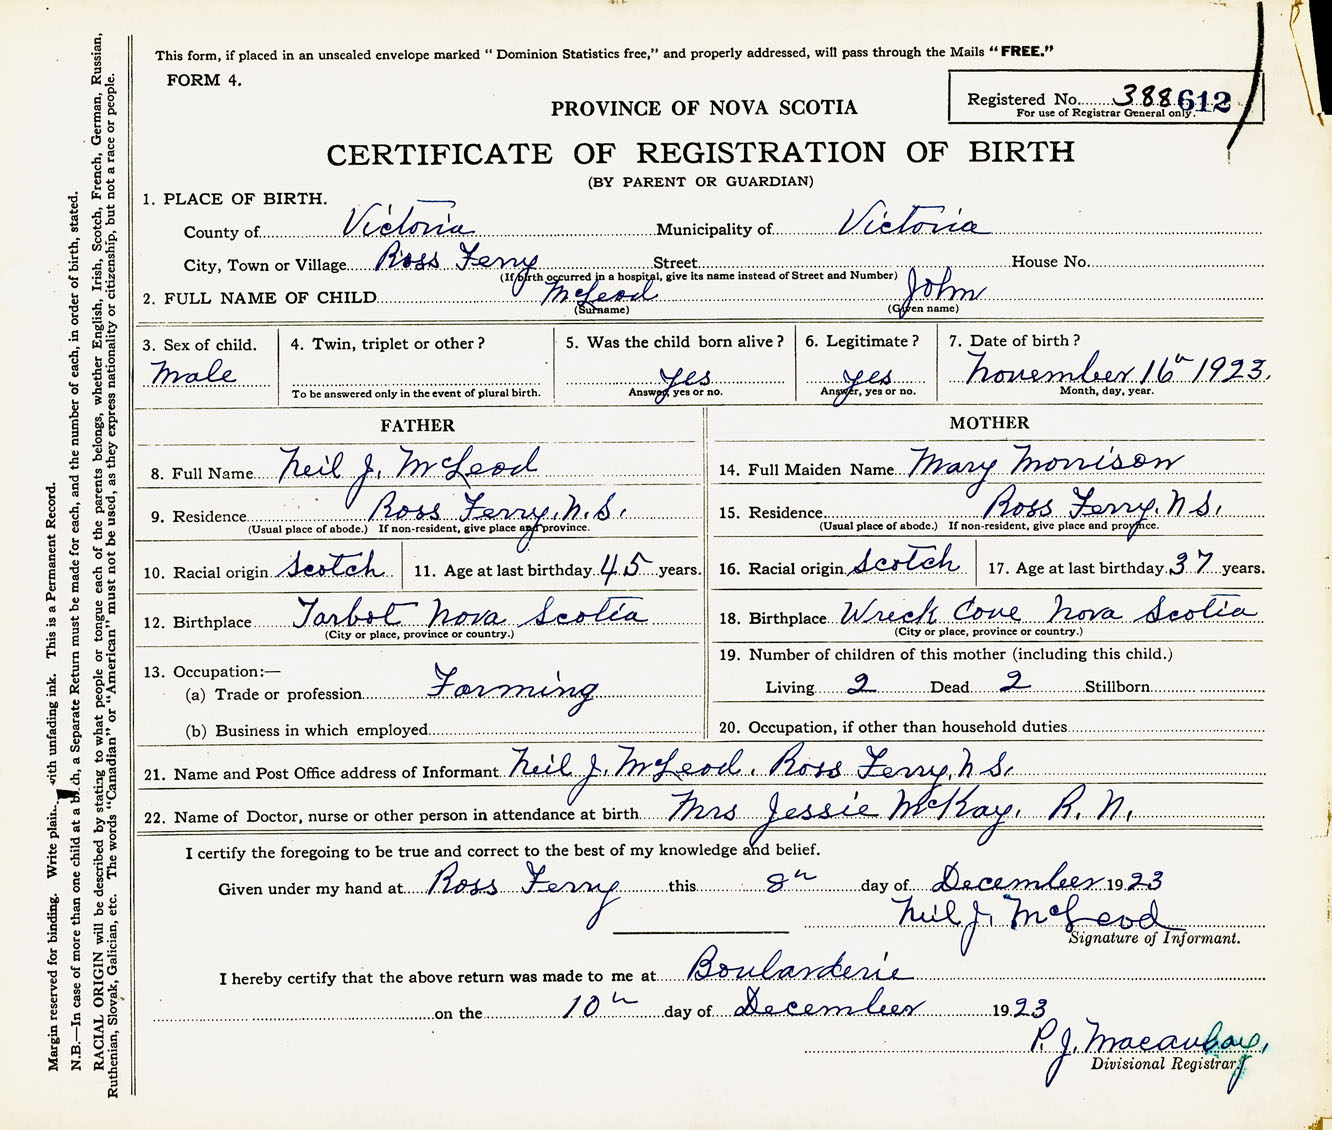 This form, if placed in an unsealed envelope marked “ Dominion Statistics free,” and properly addressed, will pass through the Mails “FREE.”
FORM 4.
Registered No. 388 612
For use of Registrar General only.
PROVINCE OF NOVA SCOTIA
CERTIFICATE OF REGISTRATION OF BIRTH
(BY PARENT OR GUARDIAN)
1. PLACE OF BIRTH.
County of Victoria Municipality of Victoria
City, Town or Village Ross Ferry Street House No.
(If birth occurred in a hospital, give its name instead of Street and Number)
2. FULL NAME OF CHILD McLeod John
(Surname) (Given name)
3. Sex of child. 4. Twin, triplet or other ? 5. Was the child born alive ? 6. Legitimate ? 7. Date of birth ?
Male yes yes November 16th 1923.
To be answered only in the event of plural birth. Answer, yes or no. Answer, yes or no. Month, day, year.
FATHER MOTHER
8. Full Name Neil J. McLeod 14. Full Maiden Name Mary Morrison
9. Residence Ross Ferry, N.S. 15. Residence Ross Ferry. N S.
(Usual place of abode.) If non-resident, give place and province. (Usual place of abode.) If non-resident, give place and province.
10. Racial origin Scotch 11. Age at last birthday 45 years. 16. Racial origin Scotch 17. Age at last birthday 37 years.
12. Birthplace Tarbot Nova Scotia 18. Birthplace Wreck Cove Nova Scotia
(City or place, province or country.) (City or place, province or country.)
13. Occupation:— 19. Number of children of this mother (including this child.)
(a) Trade or profession Farming Living 2 Dead 2 Stillborn
(b) Business in which employed 20. Occupation, if other than household duties
21. Name and Post Office address of Informant Neil J. McLeod. Ross Ferry, N S.
22. Name of Doctor, nurse or other person in attendance at birth Mrs Jessie McKay. R. N.
I certify the foregoing to be true and correct to the best of my knowledge and belief.
Given under my hand at Ross Ferry this 8th day of December 1923
Neil J. McLeod
Signature of Informant.
I hereby certify that the above return was made to me at Boularderie
on the 10th day of December 1923
P. J. Macaulay.
Divisional Registrar
Margin reserved for binding. Write plain with unfading ink. This is a Permanent Record.
N.B.—In case of more than one child at a birth, a Separate Return must be made for each, and the number of each, in order of birth, stated.
RACIAL ORIGIN will be described by stating to what people or tongue each of the parents belongs, whether English, Irish, Scotch, French, German, Russian,
Ruthenian, Slovak, Galician, etc. The words “Canadian” or “American” must not be used, as they express nationality or citizenship, but not a race or people.